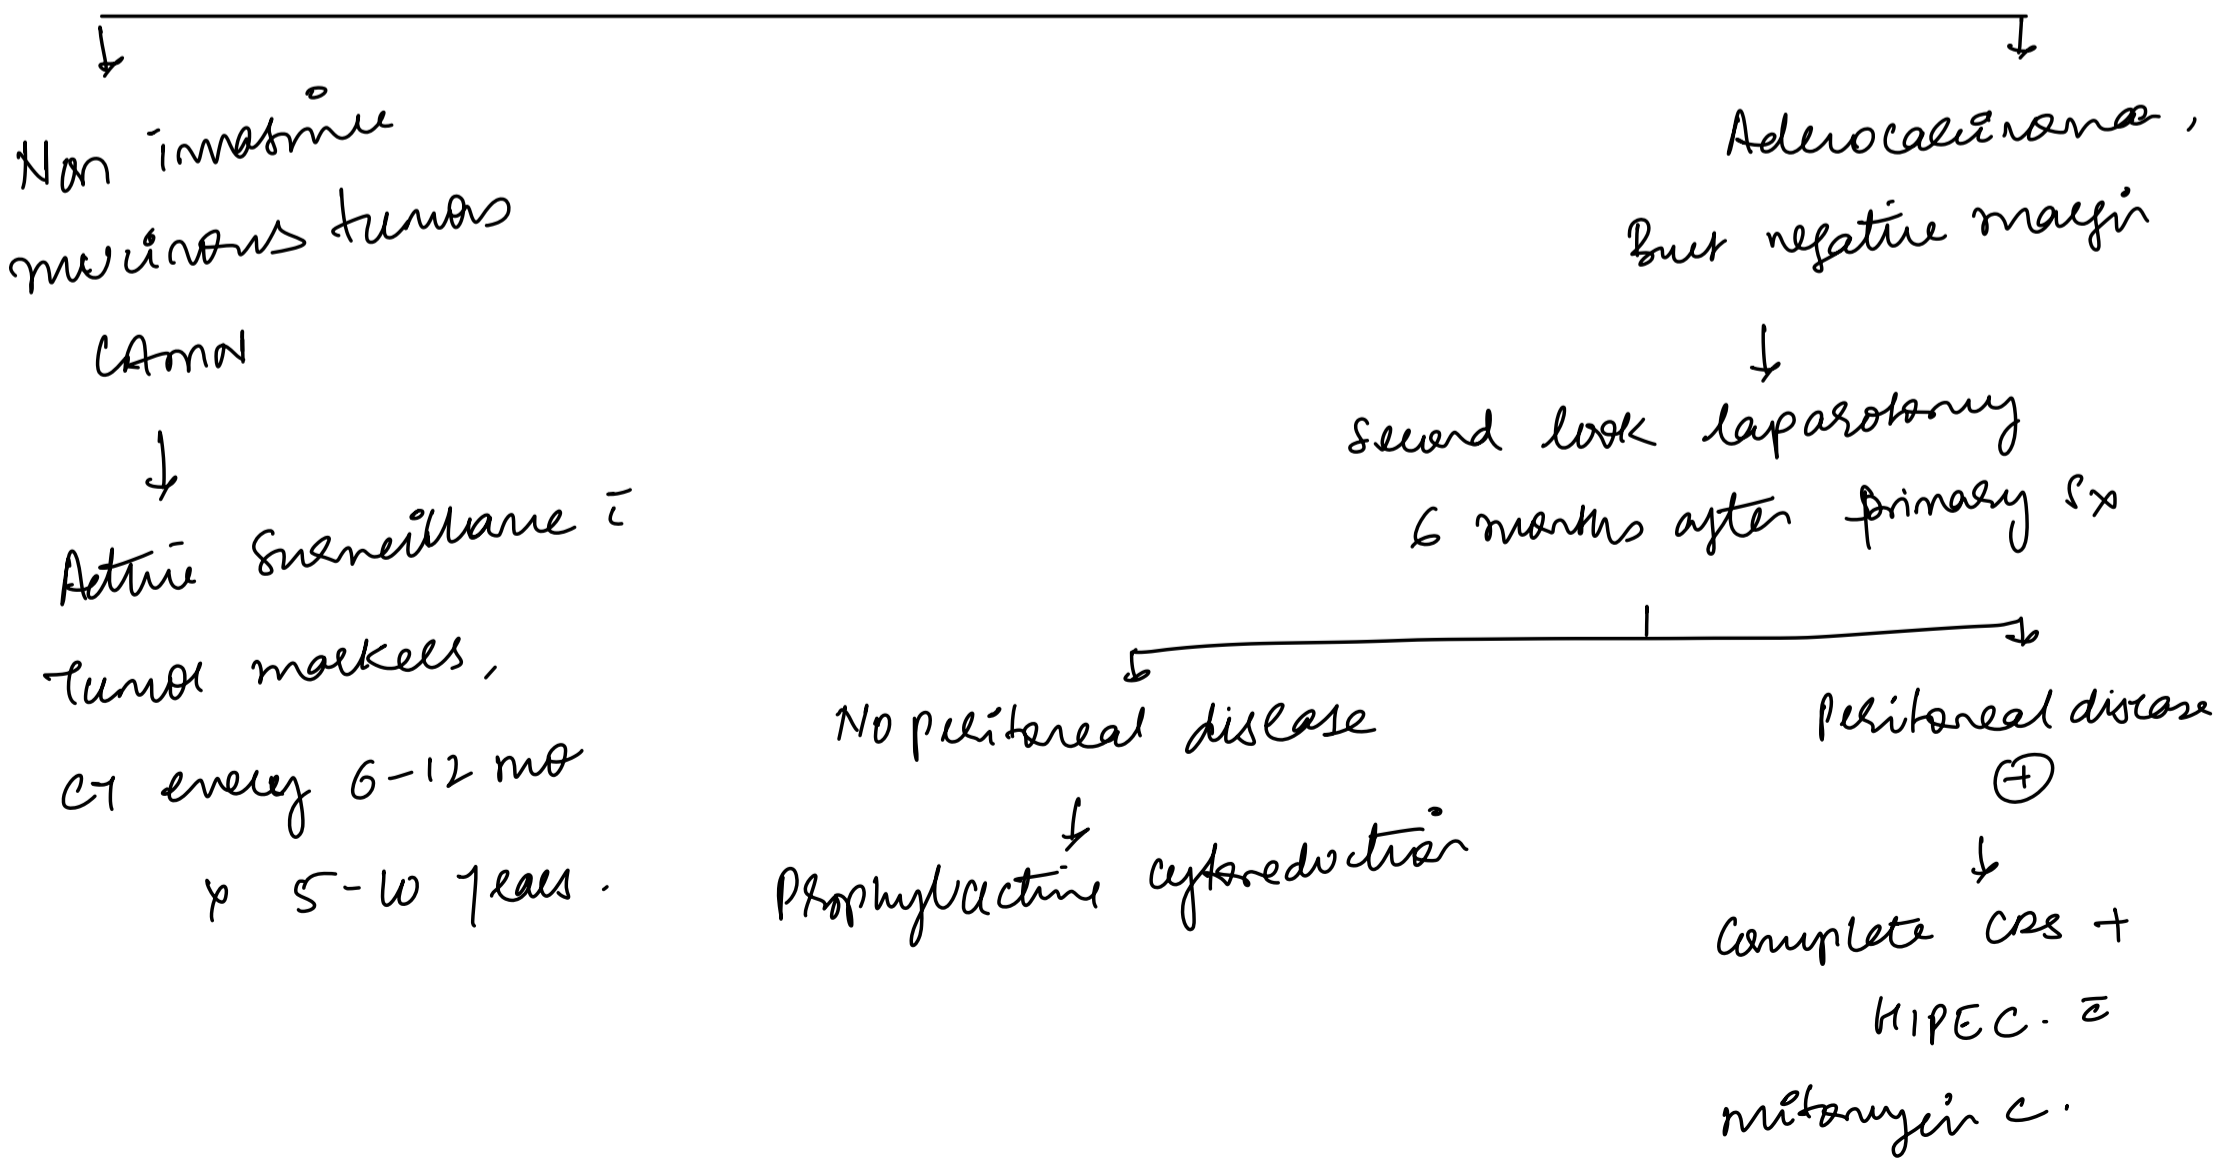 Non invasive
mucinous tumors
LAMN
Active Surveillance c̄
Tumor markers,
CT every 6-12 mo
x 5-10 years.
Adenocarcinoma,
But negative margin
Second look laparotomy
6 months after primary Sx
No peritoneal disease
Prophylactic cytoreduction
Peritoneal disease
+
Complete CRS +
HIPEC. c̄
mitomycin C.